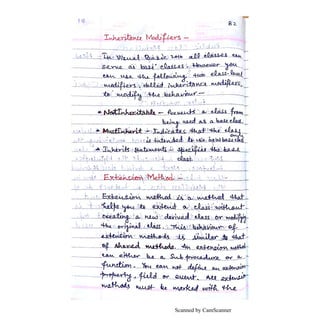 82
Inheritance Modifiers -
In Visual Basic 2010 all classes can
serve as base classes. However you
can use the following two class-level
modifiers, called inheritance modifiers,
to modify the behaviour -
* NotInheritable - Prevents a class from
being used as a base class.
* MustInherit - Indicates that the class
is intended to use as base class only
* Inherit Statement - Specifies the base
class
Extension Method -
Extension method is a method that
helps you to extend a class without
creating a new derived class or modifying
the original class. This behaviour of
extension methods is similar to that
of shared methods. An extension method
can either be a Sub procedure or a
function. You can not define an extension
property, field or event. All extension
methods must be marked with the
Scanned by CamScanner